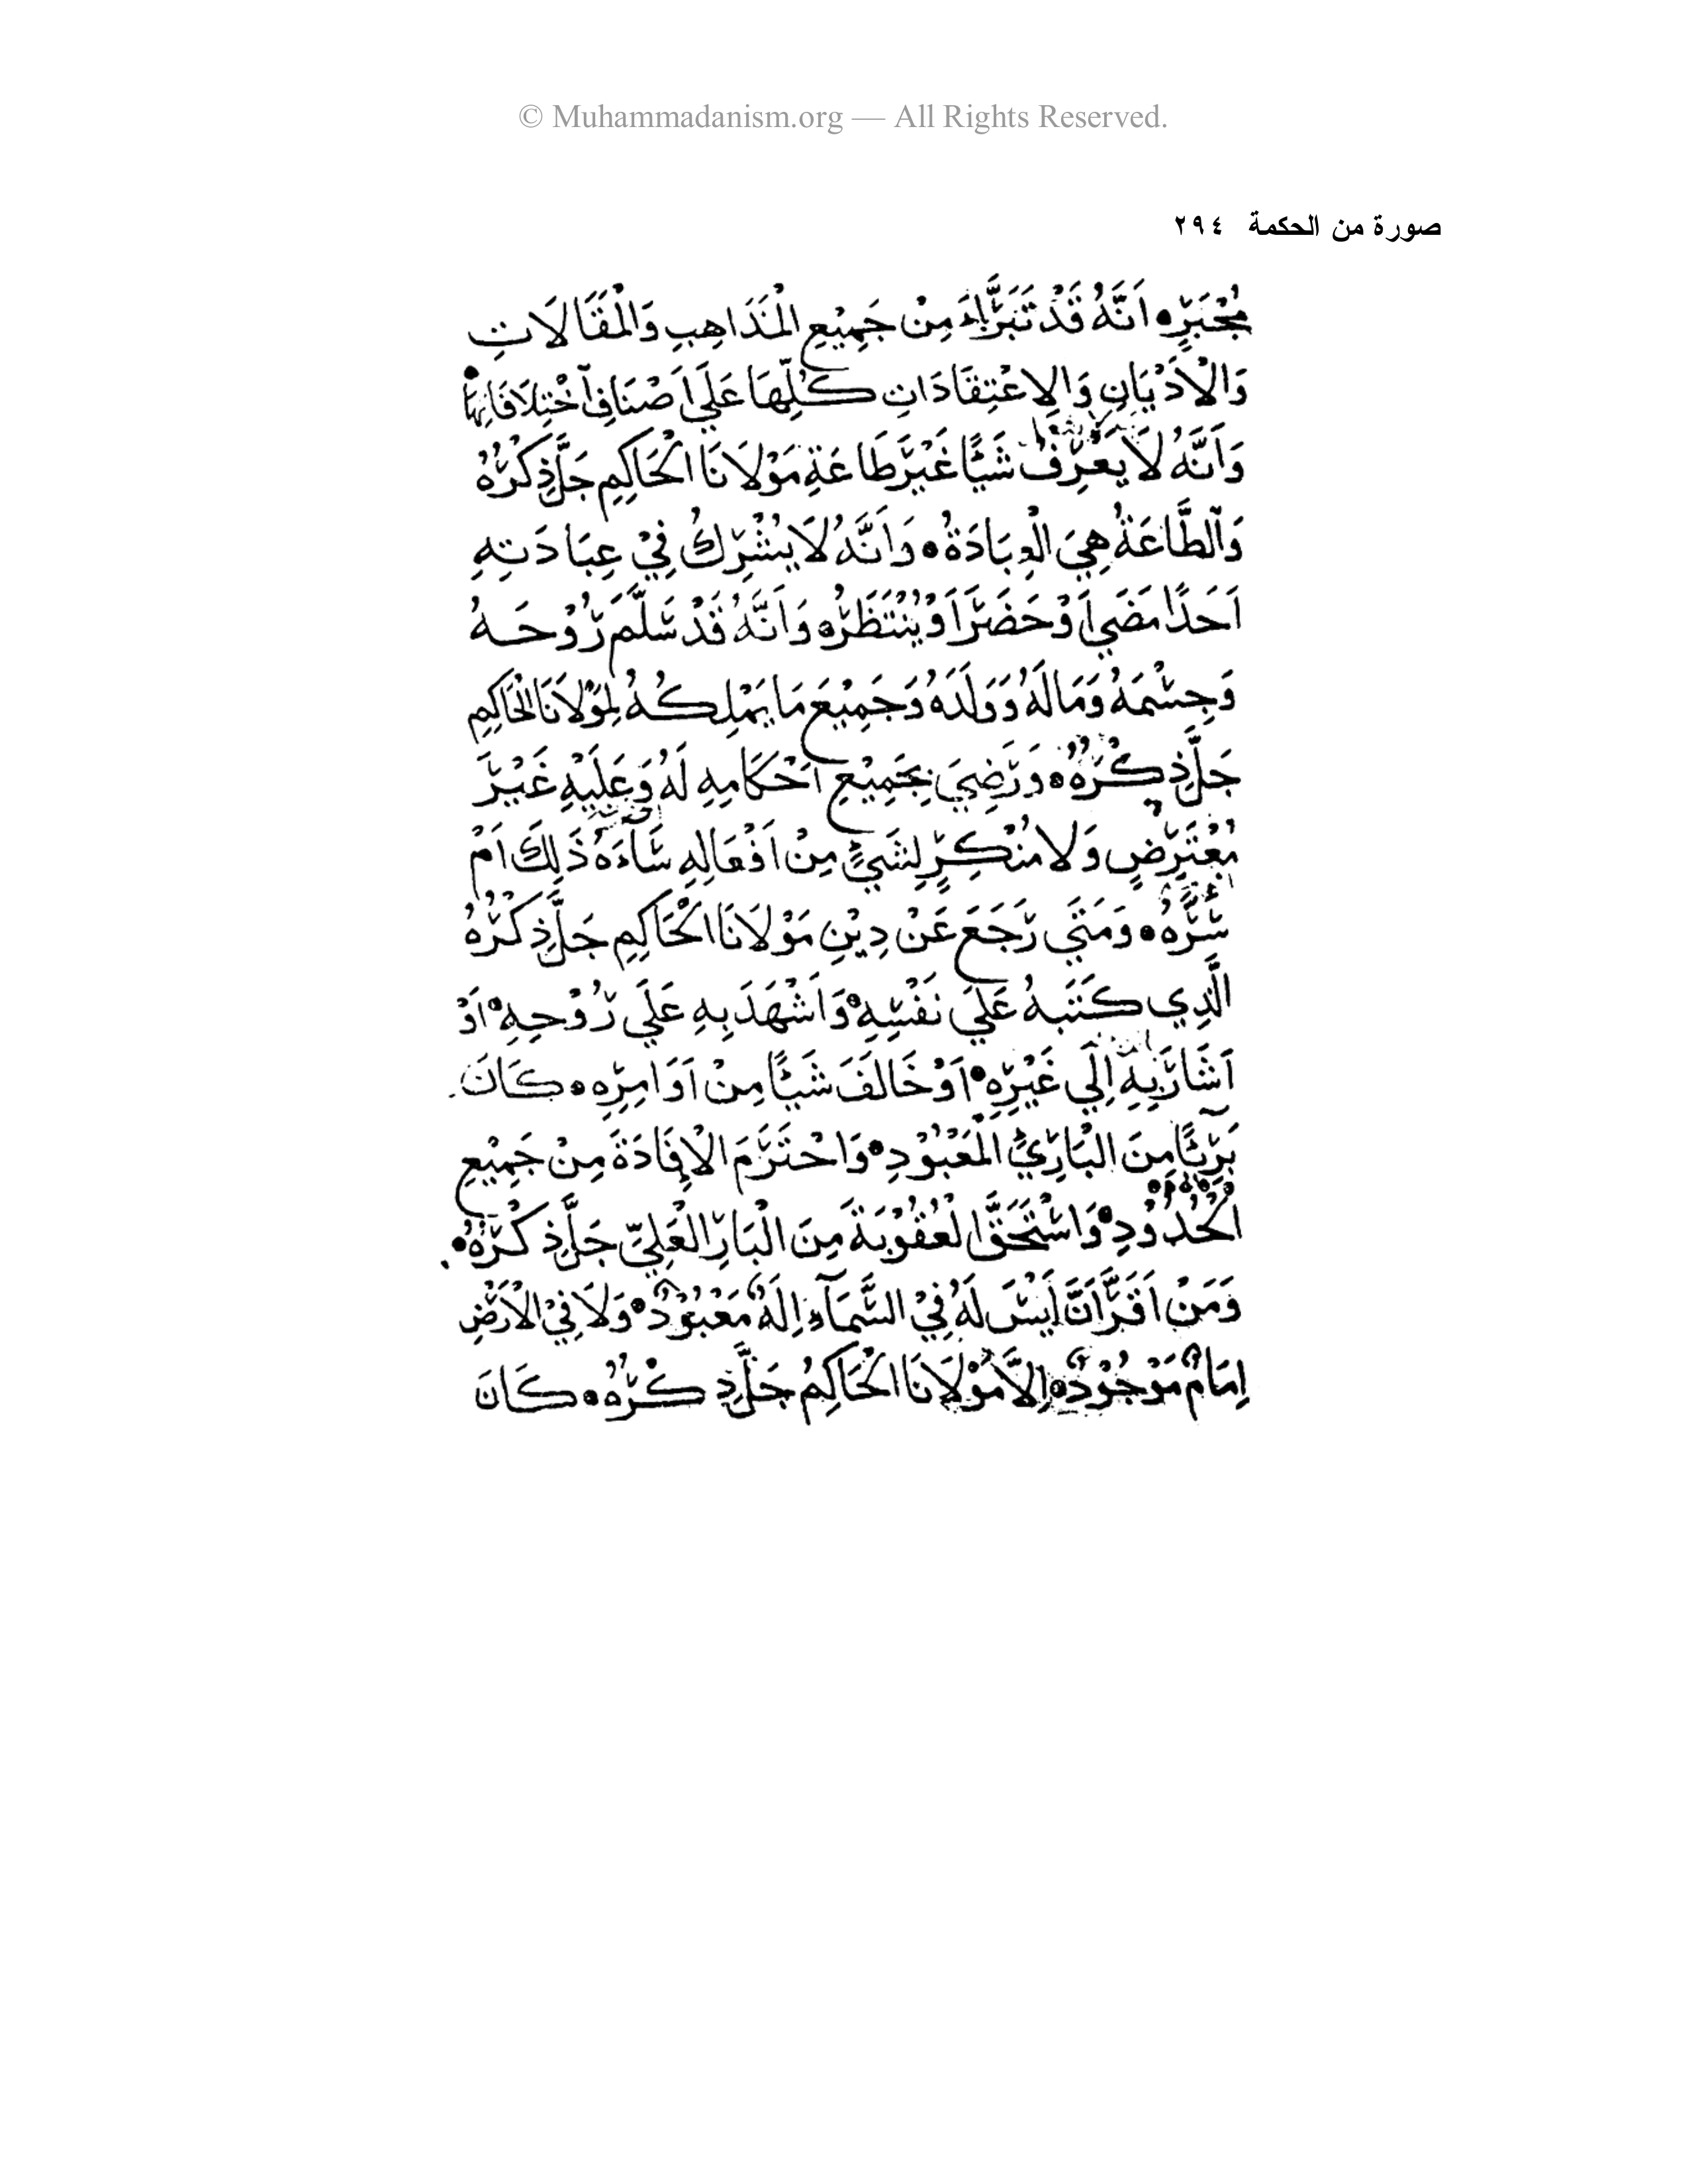 © Muhammadanism.org — All Rights Reserved.
صورة من الحكمة ٢٩٤
مُجْبَرٍ • اَنَّهُ قَدْ تَبَرَّاءَ مِنْ جَمِيْعِ الْمَذَاهِبِ وَالْمَقَالَاتِ
وَالْاَدْيَانِ وَالِاعْتِقَادَاتِ كُلِّهَا عَلَي اَصْنَافِ آخْتِلَافَاتِهَا •
وَاَنَّهُ لَا يَعْرِفُ شَيًْا غَيْرَ طَاعَةِ مَوْلَانَا الْحَاكِمِ جَلَّ ذِكْرُهُ
وَآلطَّاعَةُ هِيَ الْعِبَادَةُ • وَاَنَّهُ لَا يُشْرِكُ فِيْ عِبَادَتِهِ
اَحَدًا مَضَي اَوْ حَضَرَ اَوْ يُنْتَظَرُ • وَاَنَّهُ قَدْ سَلَّمَ رُوْحَهُ
وَجِسْمَهُ وَمَالَهُ وَوَلَدَهُ وَجَمِيْعَ مَا يَمْلِكُهُ لِمَوْلَانَا الْحَاكِمِ
جَلَّ ذِكْرُهُ • وَرَضِيَ بِجَمِيْعِ اَحْكَامِهِ لَهُ وَعَلَيْهِ غَيْرَ
مُعْتَرِضٍ وَلَا مُنْكِرٍ لِشَيْءٍ مِنْ اَفْعَالِهِ سَاءَهُ ذَلِكَ اَمْ
سَرَّهُ • وَمَتَي رَجَعَ عَنْ دِيْنِ مَوْلَانَا الْحَاكِمِ جَلَّ ذِكْرُهُ
الَّذِي كَتَبَهُ عَلَي نَفْسِهِ • وَاَشْهَدَ بِهِ عَلَي رُوْحِهِ • اَوْ
اَشَارَ بِهِ اِلَي غَيْرِهِ • اَوْ خَالَفَ شَيًْا مِنْ اَوَامِرِهِ • كَانَ
بَرِيًْا مِنَ الْبَارِيْ الْمَعْبُوْدِ • وَاحْتَرَمَ الْاِفَادَةَ مِنْ جَمِيْعِ
الْحُدُوْدِ • وَاسْتَحَقَّ الْعُقُوْبَةَ مِنَ الْبَارِ الْعَلِيِّ جَلَّ ذِكْرُهُ •
وَمَنْ اَقَرَّ اَنَّ لَيْسَ لَهُ فِيْ السَّمَآءِ اِلَهٌ مَعْبُوْدٌ • وَلَا فِيْ الْاَرْضِ
اِمَامٌ مَوْجُوْدٌ • اِلَّا مَوْلَانَا الْحَاكِمُ جَلَّ ذِكْرُهُ • كَانَ